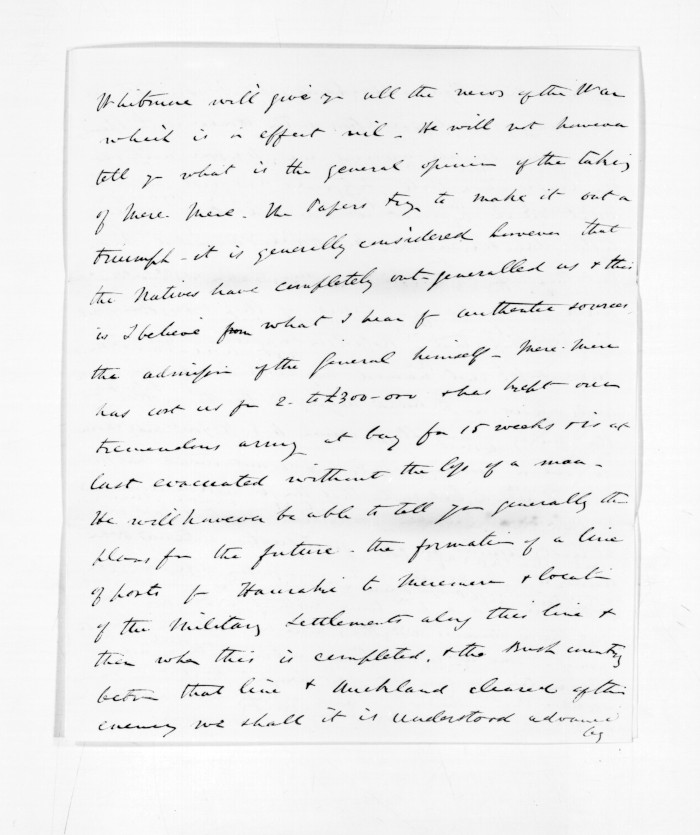 Whitmore will give yr all the news of the War
which is in effect nil - He will not however
tell yr what is the general opinion of the taking
of Mere Mere - The Papers try to make it out a
triumph - it is generally considered however that
the Natives have completely out-generalled us & this
is I believe from what I hear fr authentic sources,
the admission of the General himself - Mere-Mere
has cost us fm 2- to £300-000 & has kept our
tremendous army at bay for 15 weeks & is at
last evacuated without the loss of a man -
He will however be able to tell you generally the
plans for the future - the formation of a line
of posts fr Hauraki to Meremere & locatn
of the Military Settlements along this line &
then when this is completed, & the Bush country
betwn that line & Auckland cleared of the
enemy we shall it is understood advance
by